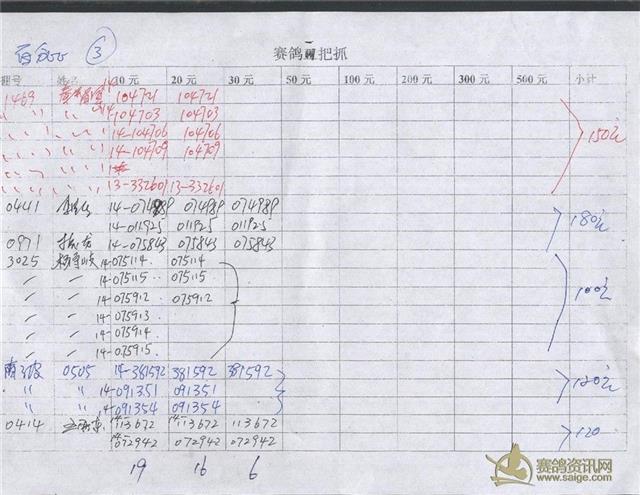 ③
赛鸽 把抓
棚号 姓名 10元 20元 30元 50元 100元 200元 300元 500元 小计
1469 104721 104721
〃 〃 〃 14-104703 104703
〃 〃 〃 〃 14-104706 104706
〃 〃 〃 〃 14-104709 104709 150元
〃 〃 〃 〃
〃 〃 〃 〃 13-332601 13-332601
0441 14-074989 074989 074989
14-011925 011925 011925 180元
0971 14-075843 075843 075843
3025 14-075114 075114
〃 〃 14-075115 075115
〃 〃 14-075912 075912 100元
〃 〃 14-075913
〃 〃 14-075914
〃 〃 14-075915
0505 14-381592 381592 381592
〃 〃 14-091351 091351 120元
〃 〃 14-091354 091354
0414 14-113672 113672 113672
14-072942 072942 072942 120
19 16 6
赛鸽资讯网
www.saige.com